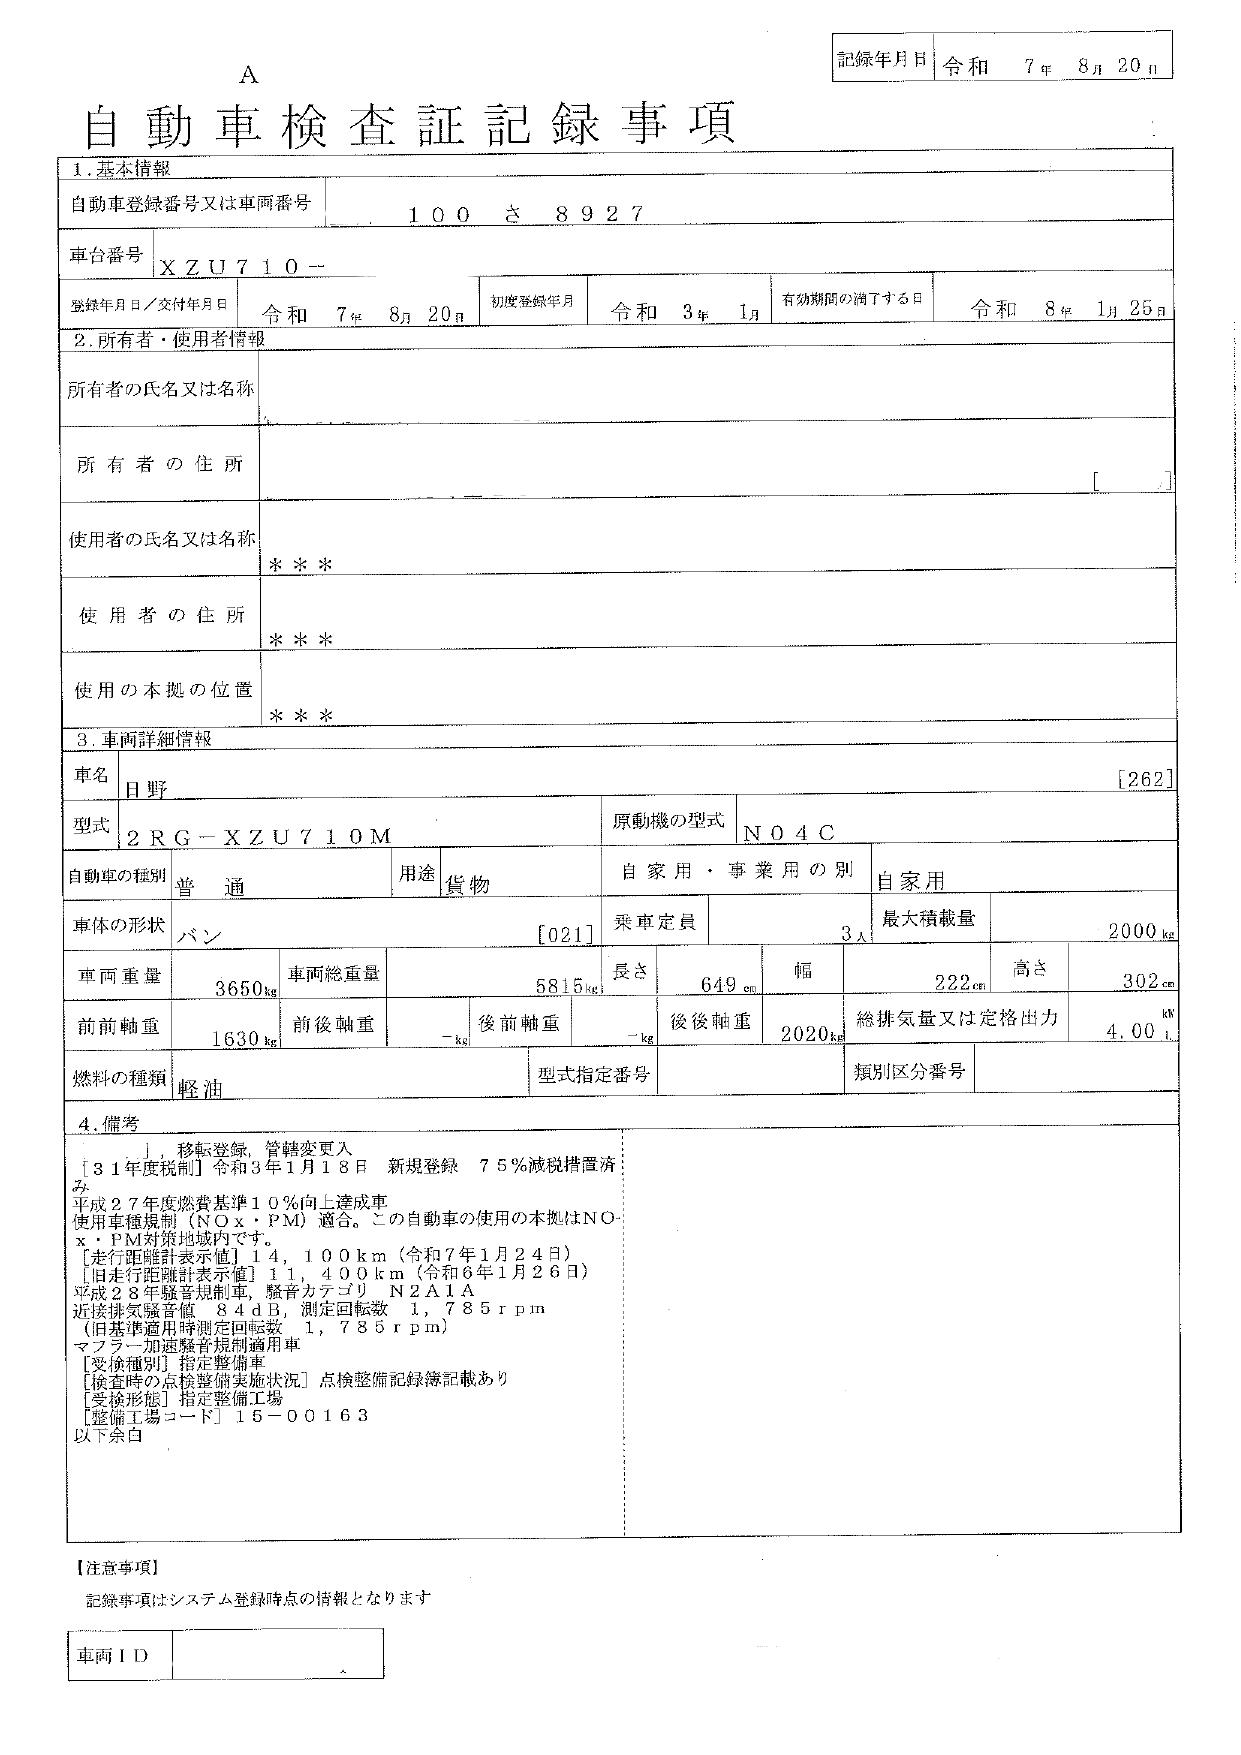 記録年月日 令和 7年 8月 20日
A
自動車検査証記録事項
1.基本情報
自動車登録番号又は車両番号 100 さ 8927
車台番号 XZU710-
登録年月日/交付年月日 令和 7年 8月 20日 初度登録年月 令和 3年 1月 有効期間の満了する日 令和 8年 1月 25日
2.所有者・使用者情報
所有者の氏名又は名称
所有者の住所 [ ]
使用者の氏名又は名称 ***
使用者の住所 ***
使用の本拠の位置 ***
3.車両詳細情報
車名 日野 [262]
型式 2RG-XZU710M 原動機の型式 N04C
自動車の種別 普通 用途 貨物 自家用・事業用の別 自家用
車体の形状 バン [021] 乗車定員 3人 最大積載量 2000kg
車両重量 3650kg 車両総重量 5815kg 長さ 649cm 幅 222cm 高さ 302cm
前前軸重 1630kg 前後軸重 -kg 後前軸重 -kg 後後軸重 2020kg 総排気量又は定格出力 4.00 kW L
燃料の種類 軽油 型式指定番号 類別区分番号
4.備考
],移転登録,管轄変更入
[31年度税制]令和3年1月18日 新規登録 75%減税措置済
み
平成27年度燃費基準10%向上達成車
使用車種規制(NOx・PM)適合。この自動車の使用の本拠はNO
x・PM対策地域内です。
[走行距離計表示値]14,100km(令和7年1月24日)
[旧走行距離計表示値]11,400km(令和6年1月26日)
平成28年騒音規制車,騒音カテゴリ N2A1A
近接排気騒音値 84dB,測定回転数 1,785rpm
(旧基準適用時測定回転数 1,785rpm)
マフラー加速騒音規制適用車
[受検種別]指定整備車
[検査時の点検整備実施状況]点検整備記録簿記載あり
[受検形態]指定整備工場
[整備工場コード]15-00163
以下余白
【注意事項】
記録事項はシステム登録時点の情報となります
車両ID